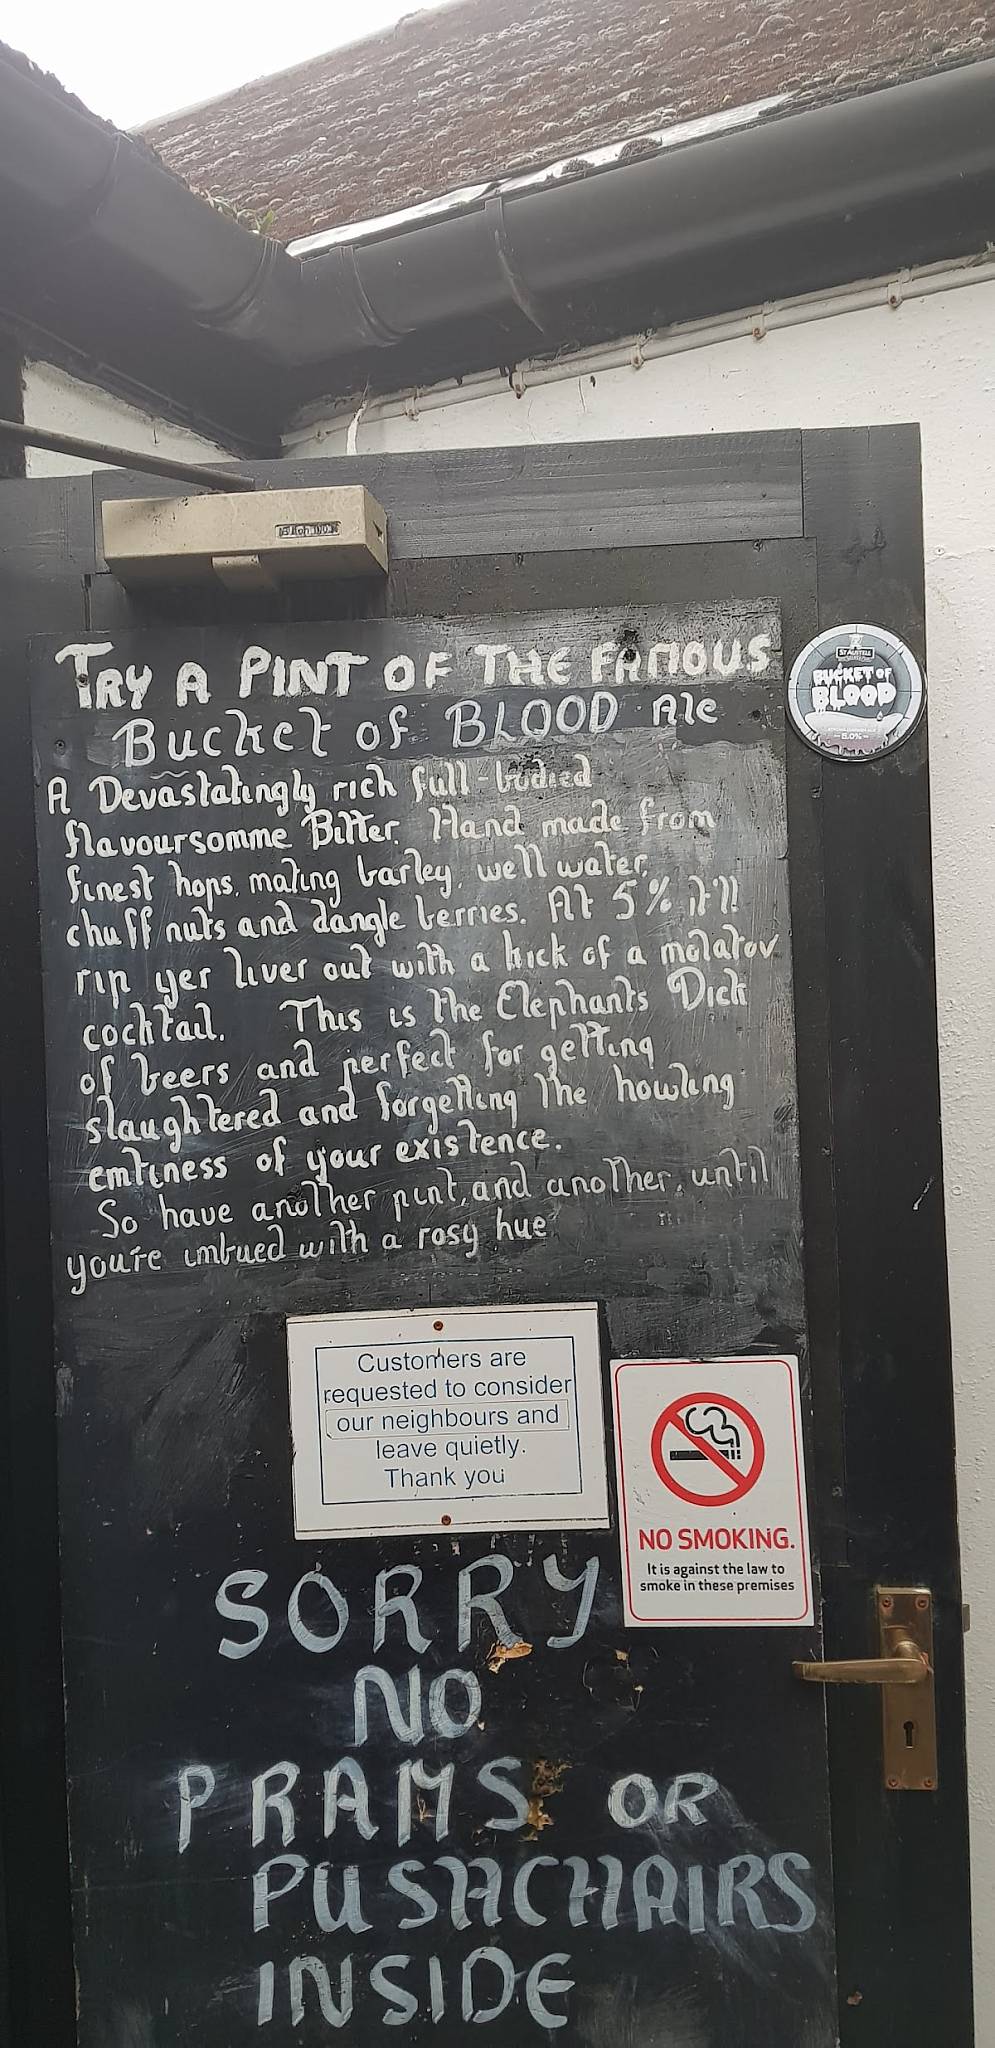 TRY A PINT OF THE FAMOUS
Bucket of BLOOD Ale
A Devastatingly rich full-bodied
flavoursomme Bitter. Hand made from
finest hops, mating barley, well water,
chuff nuts and dangle berries. At 5% it'll
rip yer liver out with a kick of a molatov
cocktail. This is the Elephants Dick
of beers and perfect for getting
slaughtered and forgetting the howling
emtiness of your existence.
So have another pint, and another, until
you're imbued with a rosy hue
ST AUSTELL
BUCKET OF
BLOOD
-5.0%-
Customers are
requested to consider
our neighbours and
leave quietly.
Thank you
NO SMOKING.
It is against the law to
smoke in these premises
SORRY
NO
PRAMS OR
PUSHCHAIRS
INSIDE